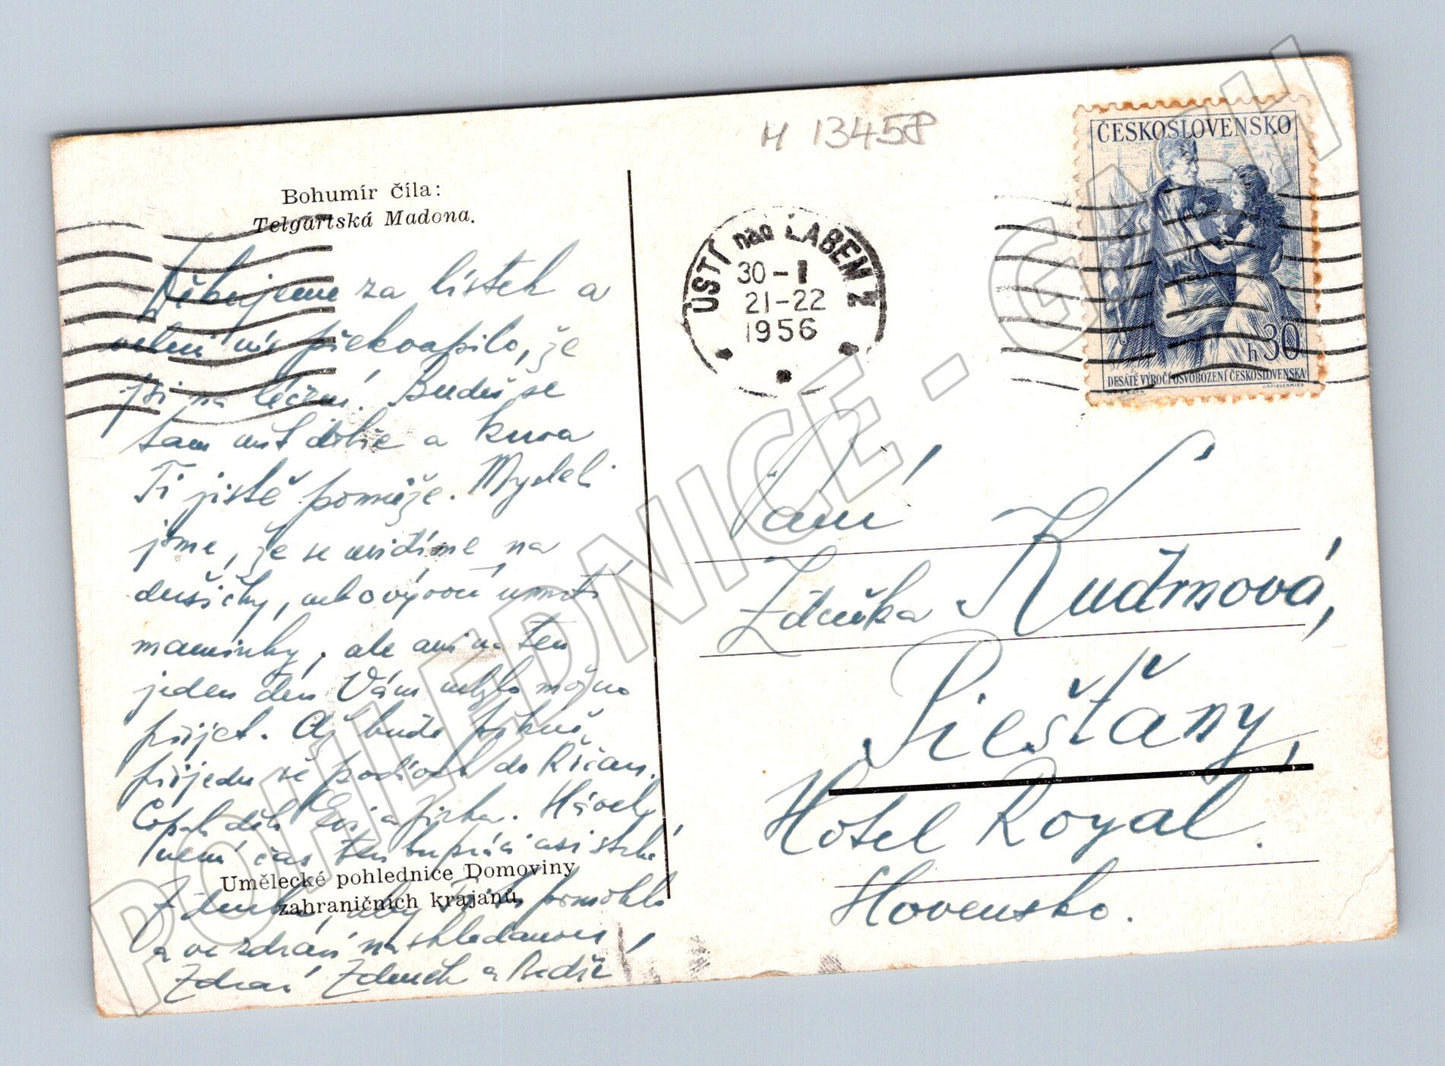 H 13458
ČESKOSLOVENSKO
h 30
DESÁTÉ VÝROČÍ OSVOBOZENÍ ČESKOSLOVENSKA
ÚSTÍ nad LABEM 2
30 - I
21-22
1956
Bohumír Číla:
Telgártská Madona.
Děkujeme za lístek a
velmi nás překvapilo, že
jsi na léčení. Budeš se
tam mít dobře a kura
Ti jistě pomůže. Mysleli
jsme, že se uvidíme na
dušičky, nebo výročí úmrtí
maminky, ale ani na ten
jeden den Vám nebylo možno
přijet. Až bude
přijedu se podívat do Říčan.
Copak děti a Jirka.
není čas
Umělecké pohlednice Domoviny
zahraničních krajanů.
pomohlo
a ve zdraví na shledanou,
Zdraví Zdeněk a
Paní
Zdeňka Kudrnová,
Piešťany,
Hotel Royal.
Slovensko.
POHLEDNICE - GASH